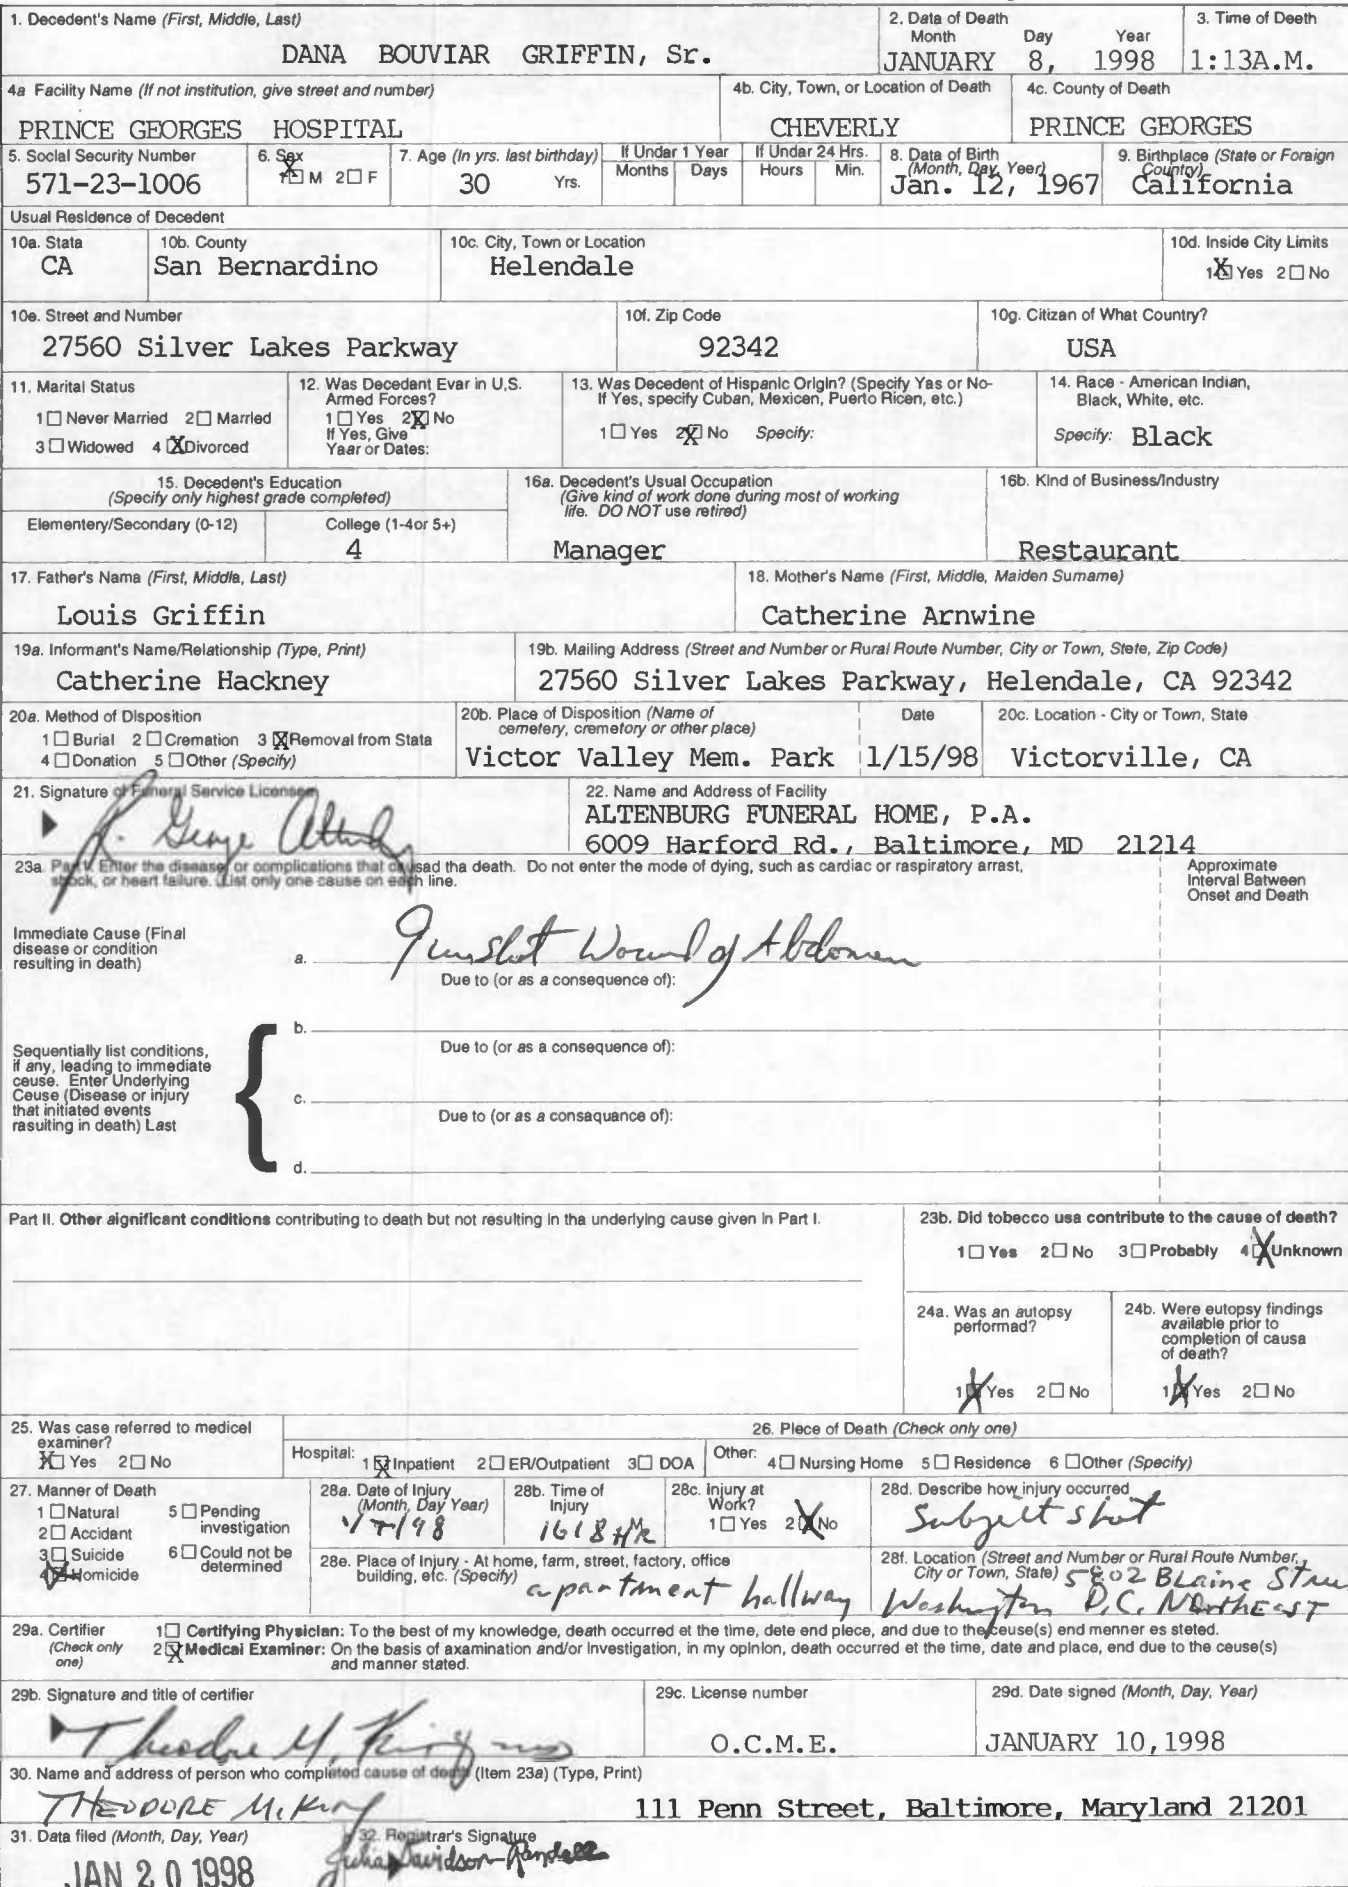 1. Decedent's Name (First, Middle, Last)
DANA BOUVIAR GRIFFIN, Sr.
2. Data of Death
Month Day Year
JANUARY 8, 1998
3. Time of Deeth
1:13A.M.
4a Facility Name (If not institution, give street and number)
PRINCE GEORGES HOSPITAL
4b. City, Town, or Location of Death
CHEVERLY
4c. County of Death
PRINCE GEORGES
5. Social Security Number
571-23-1006
6. Sex
1☒ M 2☐ F
7. Age (In yrs. last birthday)
30 Yrs.
If Under 1 Year
Months Days
If Under 24 Hrs.
Hours Min.
8. Data of Birth
(Month, Day, Yeer)
Jan. 12, 1967
9. Birthplace (State or Foraign
Country)
California
Usual Residence of Decedent
10a. Stata
CA
10b. County
San Bernardino
10c. City, Town or Location
Helendale
10d. Inside City Limits
1☒ Yes 2☐ No
10e. Street and Number
27560 Silver Lakes Parkway
10f. Zip Code
92342
10g. Citizan of What Country?
USA
11. Marital Status
1☐ Never Married 2☐ Married
3☐ Widowed 4☒ Divorced
12. Was Decedant Evar in U.S.
Armed Forces?
1☐ Yes 2☒ No
If Yes, Give
Yaar or Dates:
13. Was Decedent of Hispanic Origin? (Specify Yas or No-
If Yes, specify Cuban, Mexicen, Puerto Ricen, etc.)
1☐ Yes 2☒ No Specify:
14. Race - American Indian,
Black, White, etc.
Specify: Black
15. Decedent's Education
(Specify only highest grade completed)
Elementery/Secondary (0-12)
College (1-4or 5+)
4
16a. Decedent's Usual Occupation
(Give kind of work done during most of working
life. DO NOT use retired)
Manager
16b. Kind of Business/Industry
Restaurant
17. Father's Nama (First, Middle, Last)
Louis Griffin
18. Mother's Name (First, Middle, Maiden Surname)
Catherine Arnwine
19a. Informant's Name/Relationship (Type, Print)
Catherine Hackney
19b. Mailing Address (Street and Number or Rural Route Number, City or Town, Stete, Zip Code)
27560 Silver Lakes Parkway, Helendale, CA 92342
20a. Method of Disposition
1☐ Burial 2☐ Cremation 3☒ Removal from Stata
4☐ Donation 5☐ Other (Specify)
20b. Place of Disposition (Name of
cemetery, cremetory or other place)
Victor Valley Mem. Park
Date
1/15/98
20c. Location - City or Town, State
Victorville, CA
21. Signature of Funeral Service Licensee
22. Name and Address of Facility
ALTENBURG FUNERAL HOME, P.A.
6009 Harford Rd., Baltimore, MD 21214
23a. Part I. Enter the disease, or complications that caused tha death. Do not enter the mode of dying, such as cardiac or raspiratory arrast,
shock, or heart failure. List only one cause on each line.
Approximate
Interval Batween
Onset and Death
Immediate Cause (Final
disease or condition
resulting in death)
a. Gunshot Wound of Abdomen
Due to (or as a consequence of):
b.
Due to (or as a consequence of):
Sequentially list conditions,
if any, leading to immediate
ceuse. Enter Underlying
Ceuse (Disease or injury
that initiated events
rasulting in death) Last
c.
Due to (or as a consaquance of):
d.
Part II. Other aignificant conditions contributing to death but not resulting in tha underlying cause given in Part I.
23b. Did tobecco usa contribute to the cause of death?
1☐ Yes 2☐ No 3☐ Probably 4☒ Unknown
24a. Was an autopsy
performad?
1☒ Yes 2☐ No
24b. Were eutopsy findings
available prior to
completion of causa
of death?
1☒ Yes 2☐ No
25. Was case referred to medicel
examiner?
☒ Yes 2☐ No
26. Plece of Death (Check only one)
Hospital: 1☒ Inpatient 2☐ ER/Outpatient 3☐ DOA Other: 4☐ Nursing Home 5☐ Residence 6☐ Other (Specify)
27. Manner of Death
1☐ Natural
2☐ Accidant
3☐ Suicide
4☒ Homicide
5☐ Pending
investigation
6☐ Could not be
determined
28a. Date of Injury
(Month, Day Year)
1/7/98
28b. Time of
Injury
1618 HR M
28c. Injury at
Work?
1☐ Yes 2☒ No
28d. Describe how injury occurred
Subject shot
28e. Place of Injury - At home, farm, street, factory, office
building, etc. (Specify)
apartment hallway
28f. Location (Street and Number or Rural Route Number,
City or Town, State) 5802 Blaine Stree
Washington D.C. NorthEast
29a. Certifier
(Check only
one)
1☐ Certifying Physician: To the best of my knowledge, death occurred et the time, dete end plece, and due to the ceuse(s) end menner es steted.
2☒ Medical Examiner: On the basis of axamination and/or Investigation, in my opinion, death occurred et the time, date and place, end due to the ceuse(s)
and manner stated.
29b. Signature and title of certifier
Theodore M. King MD
29c. License number
O.C.M.E.
29d. Date signed (Month, Day, Year)
JANUARY 10,1998
30. Name and address of person who completed cause of death (Item 23a) (Type, Print)
THEODORE M. King
111 Penn Street, Baltimore, Maryland 21201
31. Data filed (Month, Day, Year)
JAN 20 1998
32. Registrar's Signature
Julia Davidson-Randall